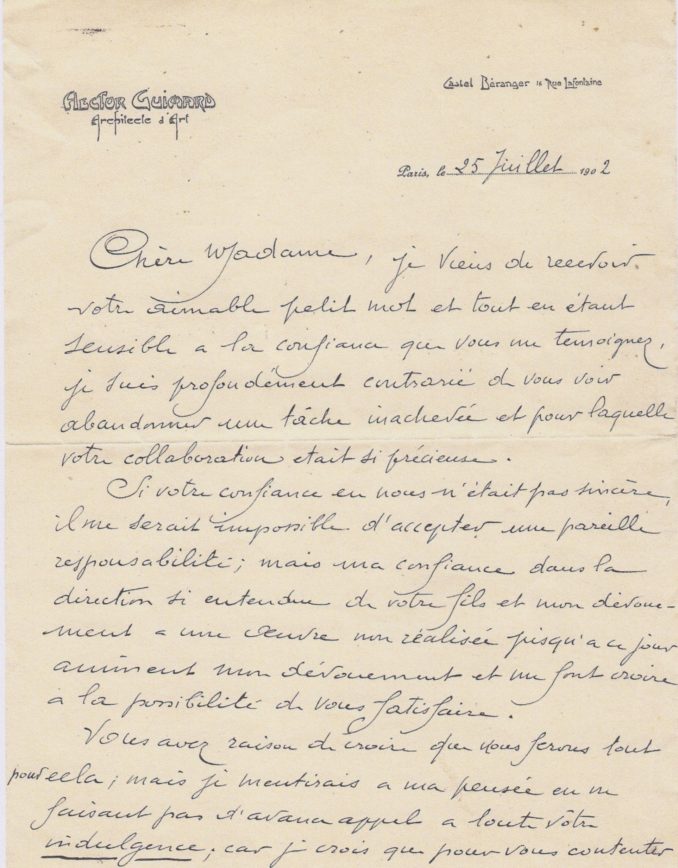 Hector Guimard
Architecte d'Art
Castel Béranger 16 Rue Lafontaine
Paris, le 25 Juillet 1902
Chère Madame, je viens de recevoir
votre aimable petit mot et tout en étant
sensible a la confiance que vous me temoignez,
je suis profondément contrarié de vous voir
abandonner une tâche inachevée et pour laquelle
votre collaboration etait si précieuse.
Si votre confiance en nous n'était pas sincère,
il me serait impossible d'accepter une pareille
responsabilité; mais ma confiance dans la
direction si entendue de votre fils et mon dévoue-
ment a une œuvre non réalisée jusqu'a ce jour
animent mon dévouement et me font croire
à la possibilité de vous satisfaire.
Vous avez raison de croire que nous ferons tout
pour cela; mais je mentirais a ma pensée en ne
faisant pas d'avance appel a toute vôtre
indulgence; car je crois que pour vous contenter